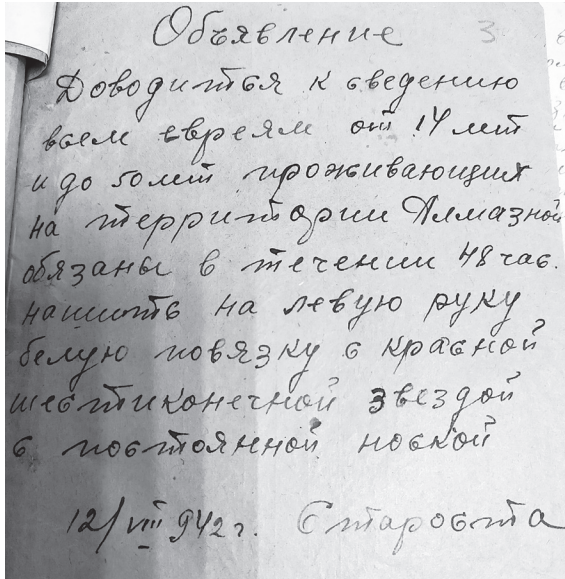 Объявление 3
Доводиться к сведению
всем евреям от 14 лет
и до 50 лет проживающих
на территории Алмазной
обязаны в течении 48 час.
нашить на левую руку
белую повязку с красной
шестиконечной звездой
с постоянной ноской
12/VIII 942 г. Староста